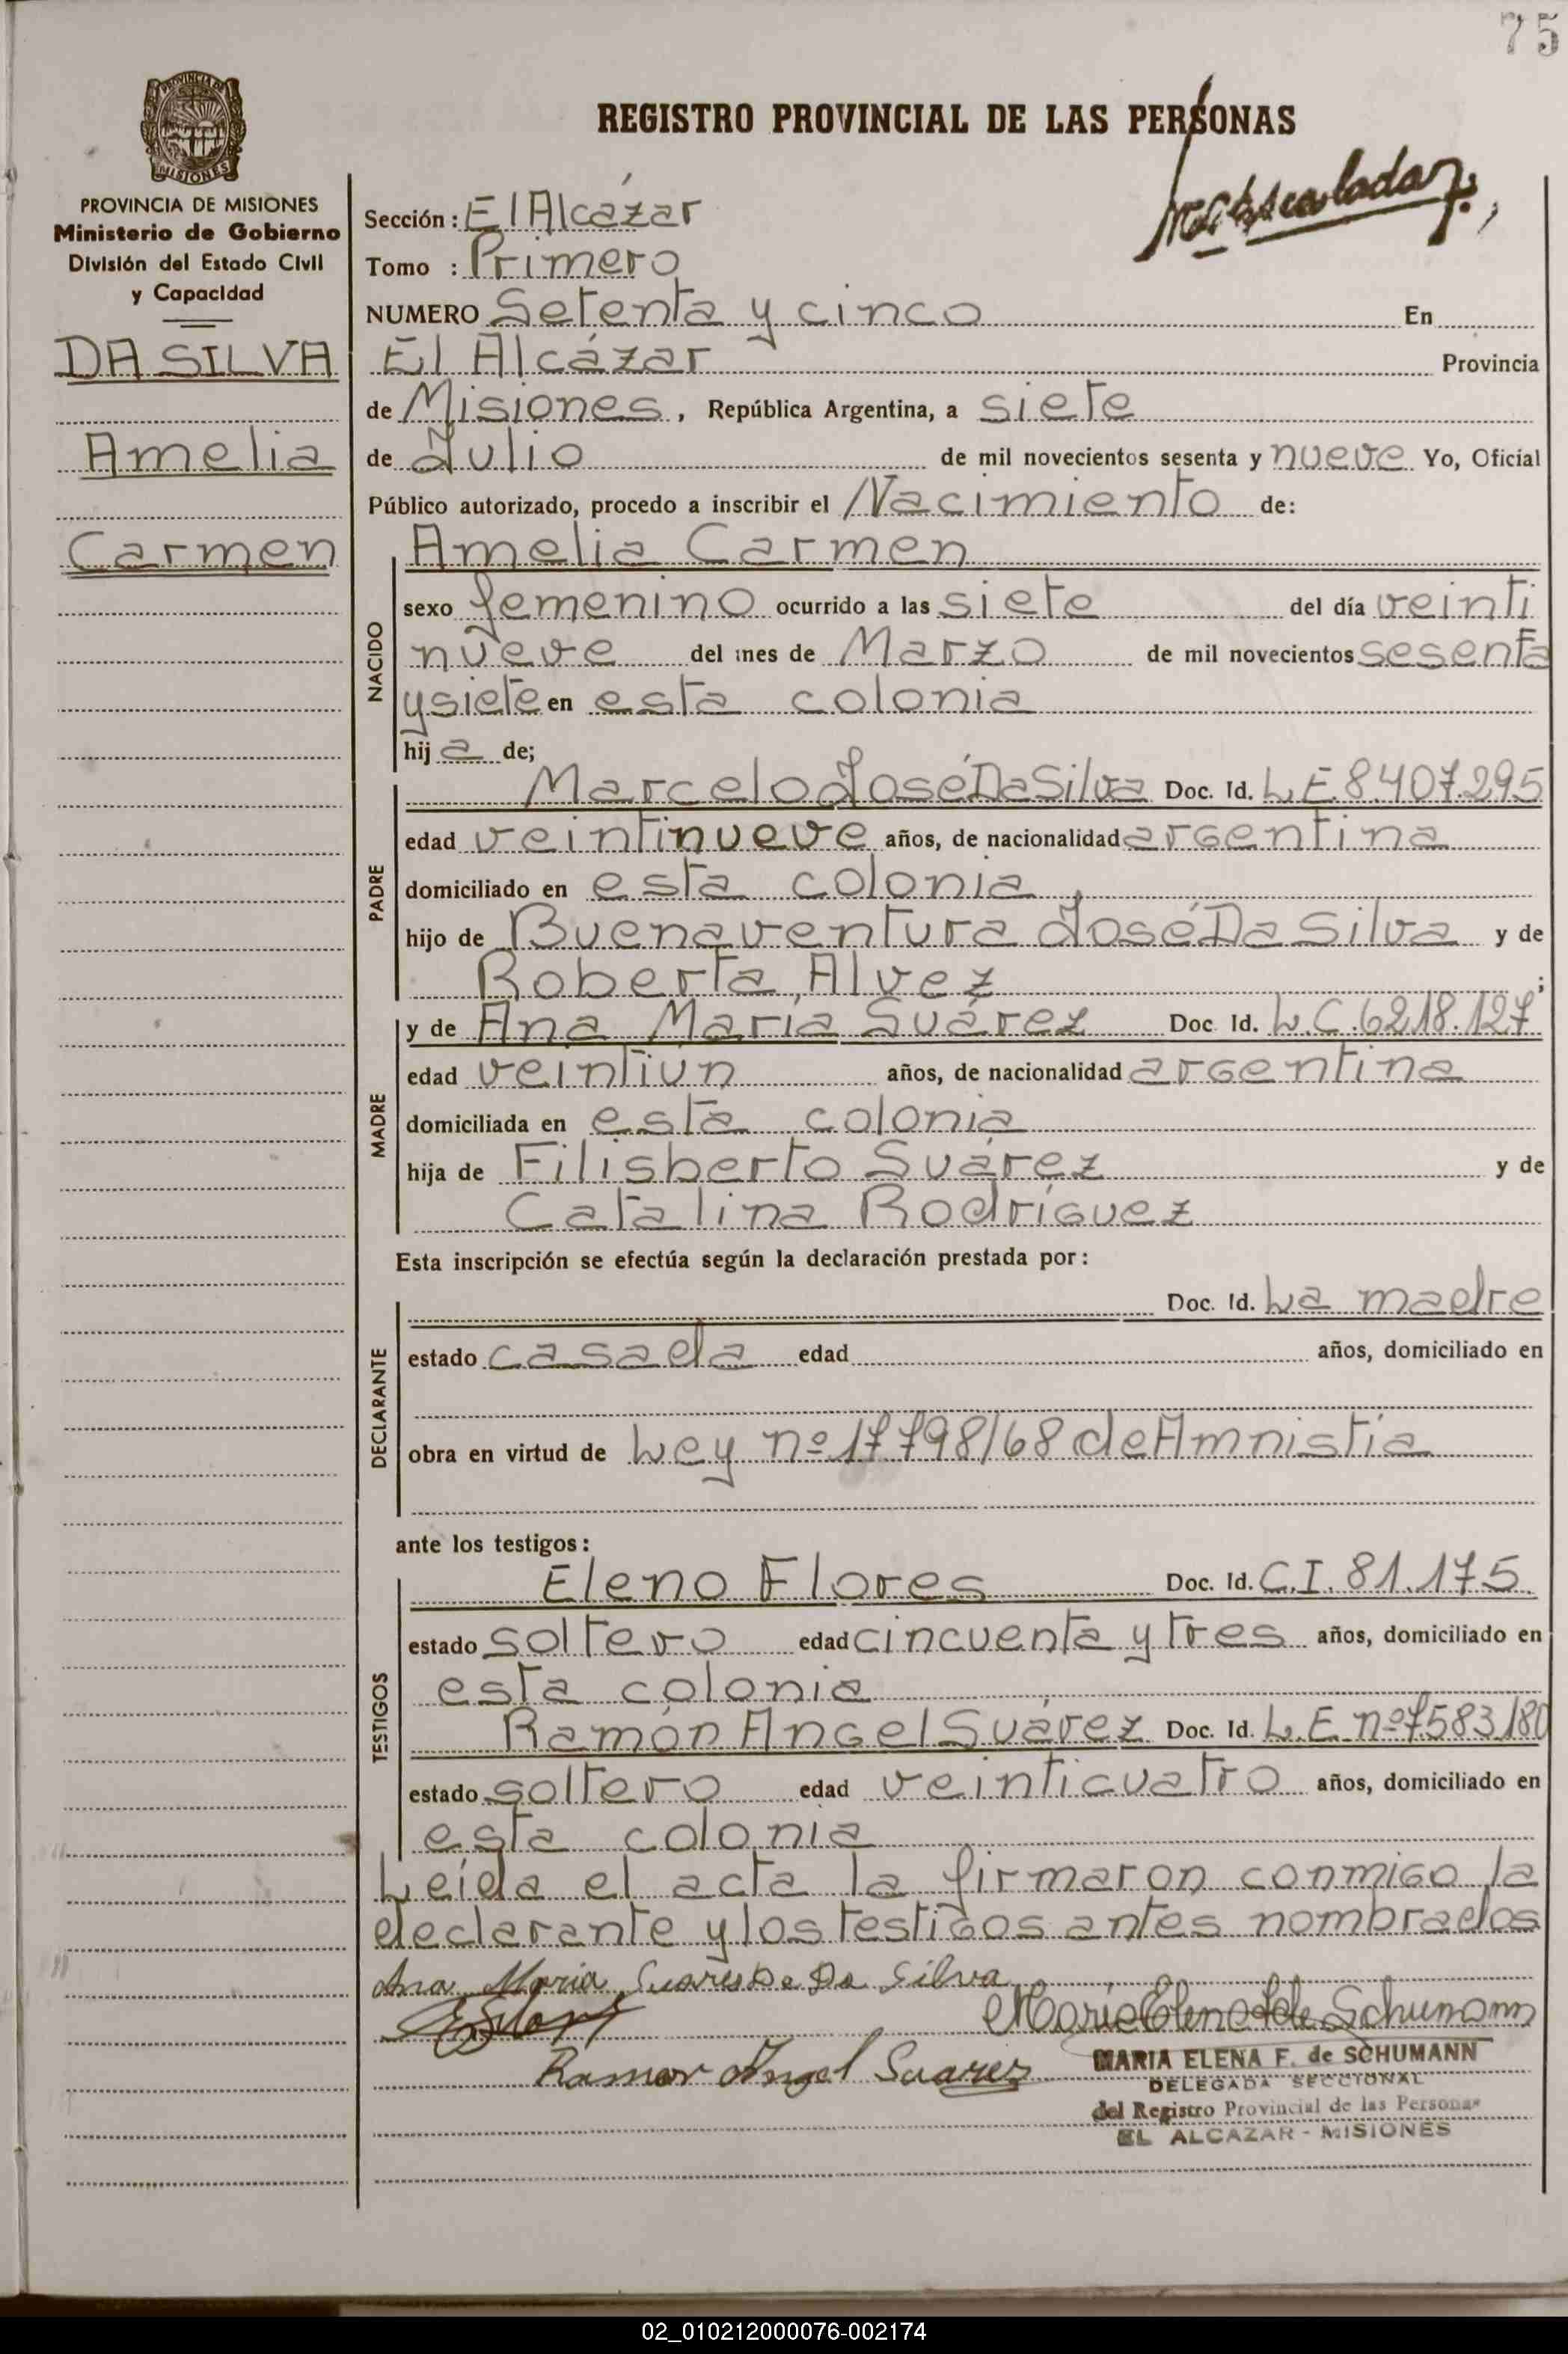 75
PROVINCIA DE
MISIONES
REGISTRO PROVINCIAL DE LAS PERSONAS
PROVINCIA DE MISIONES
Ministerio de Gobierno
División del Estado Civil
y Capacidad
DA SILVA
Amelia
Carmen
Sección: El Alcázar
Tomo : Primero
NUMERO Setenta y cinco En
El Alcázar Provincia
de Misiones, República Argentina, a siete
de Julio de mil novecientos sesenta y nueve Yo, Oficial
Público autorizado, procedo a inscribir el Nacimiento de:
NACIDO
Amelia Carmen
sexo femenino ocurrido a las siete del día veinti
nueve del mes de Marzo de mil novecientos sesenta
y siete en esta colonia
hij a de;
PADRE
Marcelo José Da Silva Doc. Id. L.E.8.407.295
edad veintinueve años, de nacionalidad argentina
domiciliado en esta colonia
hijo de Buenaventura José Da Silva y de
Roberta Alvez ;
MADRE
y de Ana María Suárez Doc. Id. L.C.6218.127
edad veintiun años, de nacionalidad argentina
domiciliada en esta colonia
hija de Filisberto Suárez y de
Catalina Rodríguez
Esta inscripción se efectúa según la declaración prestada por:
DECLARANTE
Doc. Id. La madre
estado casada edad años, domiciliado en
obra en virtud de Ley nº 17798/68 de Amnistía
ante los testigos:
TESTIGOS
Eleno Flores Doc. Id. C.I. 81.175
estado soltero edad cincuenta y tres años, domiciliado en
esta colonia
Ramón Angel Suárez Doc. Id. L.E. nº7.583.180
estado soltero edad veinticuatro años, domiciliado en
esta colonia
Leída el acta la firmaron conmigo la
declarante y los testigos antes nombrados
Ana Maria Suares De Da Silva
Maria Elena F de Schumann
Ramon Angel Suarez
MARIA ELENA F. de SCHUMANN
DELEGADA SECCIONAL
del Registro Provincial de las Personas
EL ALCAZAR - MISIONES
02_010212000076-002174